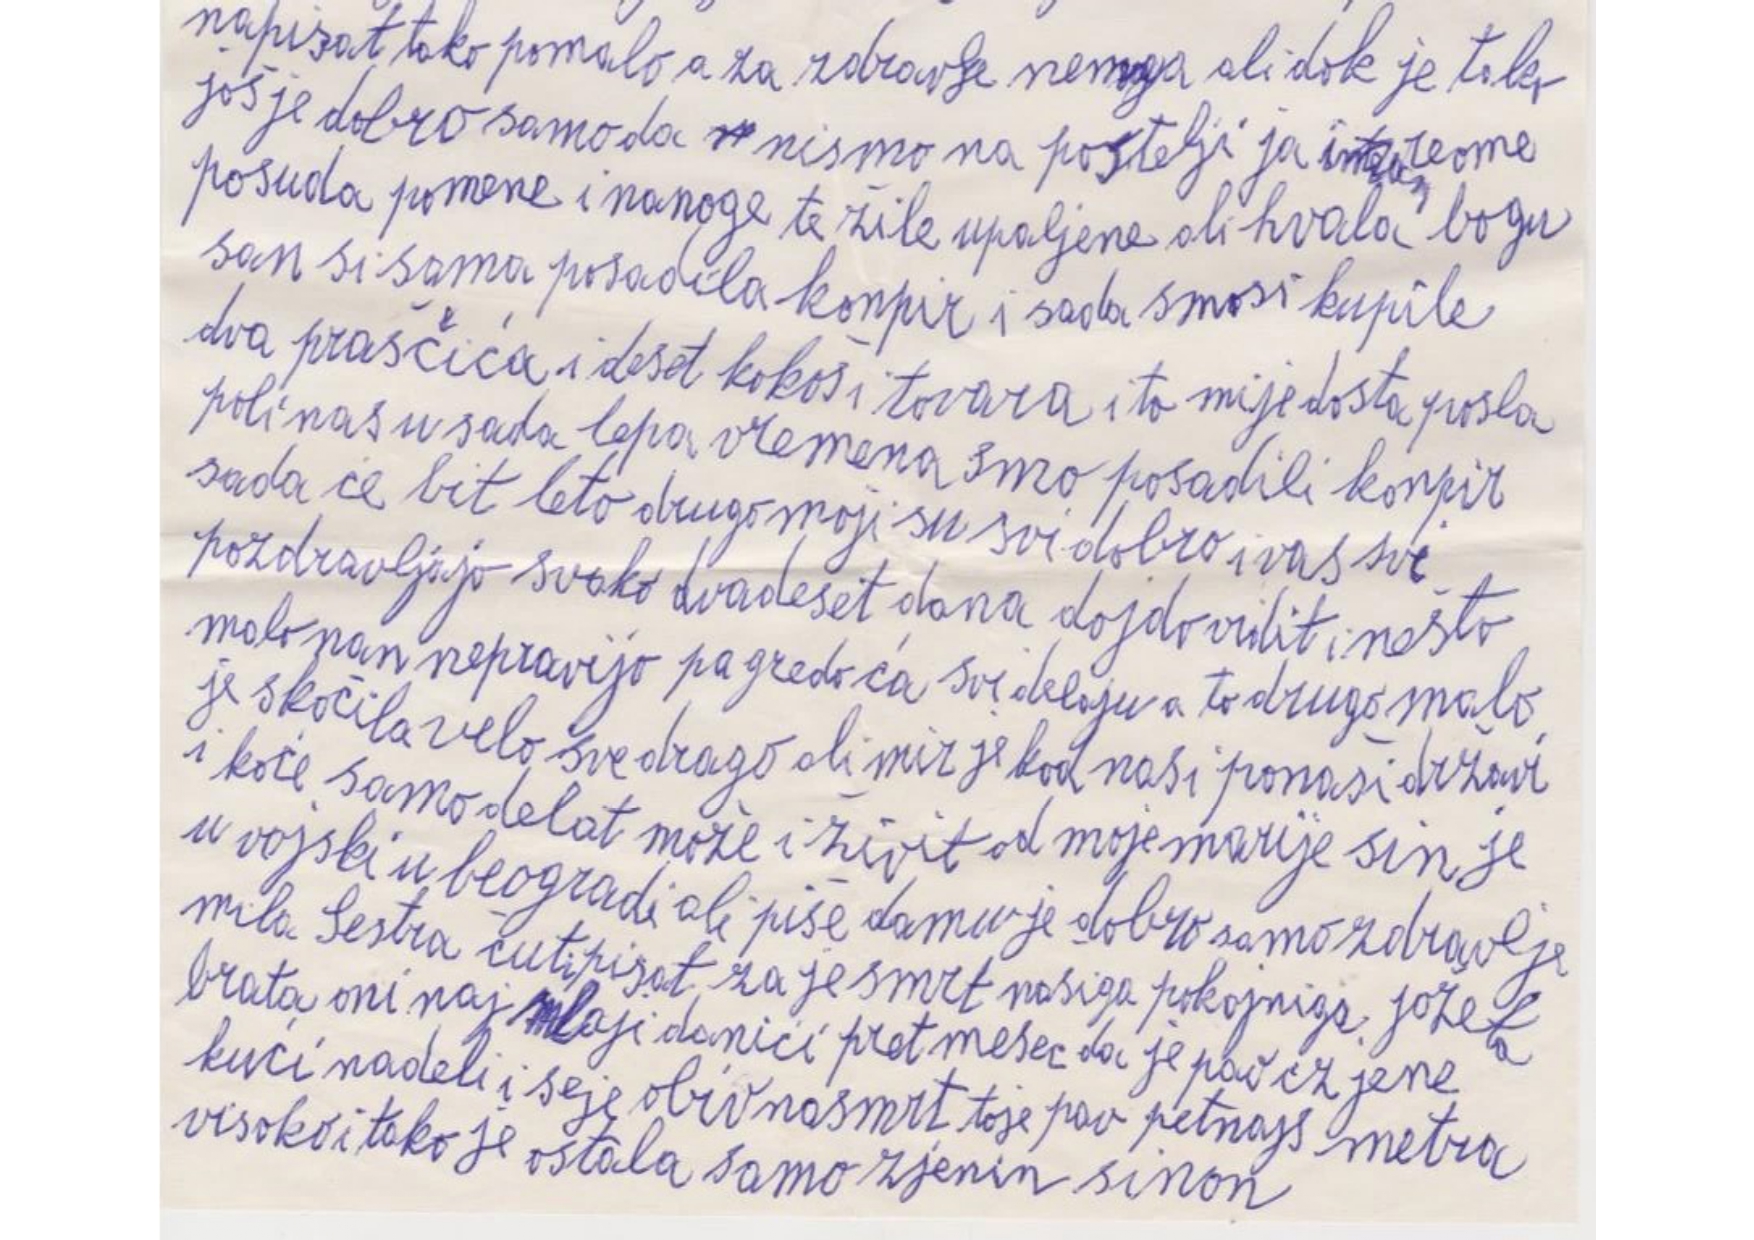 napisat tako pomalo a za zdravlje nemoga ali dok je tako
još je dobro samo da nismo na postelji ja reome
posuda pomene i nanoge te žile upaljene ali hvala bogu
san si sama posadila konpir i sada smo si kupile
dva praščića i deset kokoši i tovara i to mi je dosta posla
poli nas su sada lepa vremena smo posadili konpir
sada će bit leto drugo moji su svi dobro i vas svi
pozdravljajo svako dvadeset dana dojdo vidit i nešto
malo nan nepravijo pa gredo ća svi delaju a to drugo malo
je skočila velo sve drago ali mir je kod nas i po naši državi
i koće samo delat može i živit od moje marije sin je
u vojski u beogradi ali piše da mu je dobro samo zdravlje
mila Sestra ču ti pisat za je smrt našiga pokojniga jožeta
brata oni naj mlaji danići pret mesec da je pav iz jene
kući nadeli i se je obiv nasmrt to je pav petnajs metra
visoko i tako je ostala samo z jenin sinon